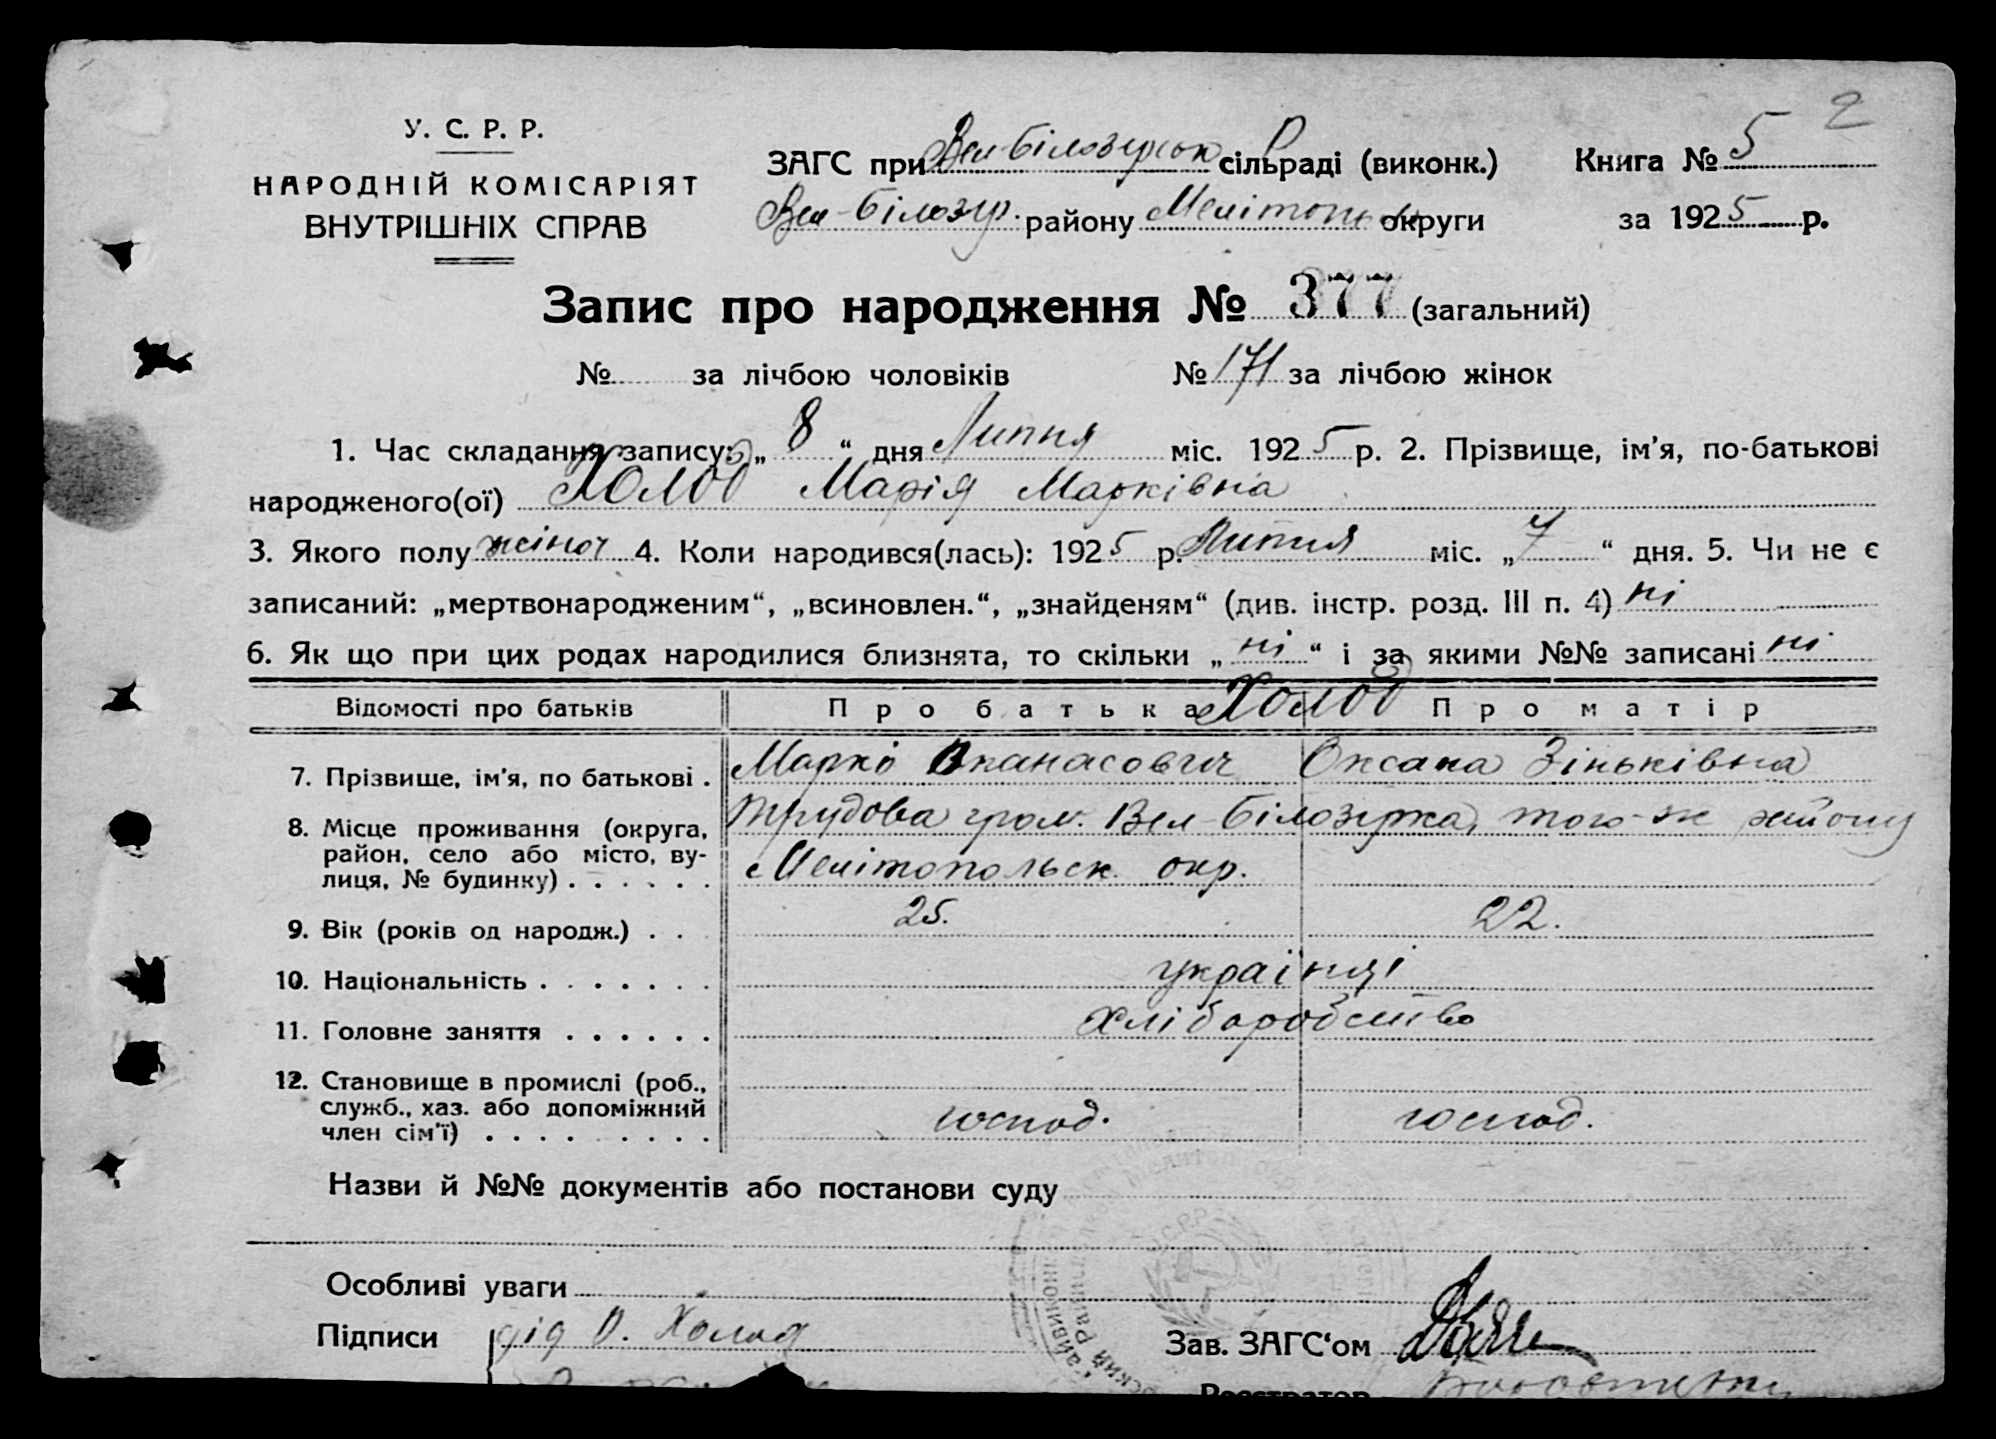 2
У. С. Р. Р.
НАРОДНІЙ КОМІСАРІЯТ
ВНУТРІШНІХ СПРАВ
ЗАГС при Вел-Білозерськ Р сільраді (виконк.) Книга № 5
Вел-Білозер. району Мелітопольськ округи за 1925 р.
Запис про народження № 377 (загальний)
№ за лічбою чоловіків № 171 за лічбою жінок
1. Час складання запису: „ 8 “ дня Липня міс. 1925 р. 2. Прізвище, ім’я, по-батькові
народженого(ої) Холод Марія Марківна
3. Якого полу жіноч 4. Коли народився(лась): 1925 р. Липня міс. „ 7 “ дня. 5. Чи не є
записаний: „мертвонародженим“, „всиновлен.“, „знайденям“ (див. інстр. розд. III п. 4) ні
6. Як що при цих родах народилися близнята, то скільки „ ні “ і за якими №№ записані ні
Відомості про батьків Про батька Холод Про матір
7. Прізвище, ім’я, по батькові . Марко Опанасович Оксана Зіньківна
8. Місце проживання (округа, район, село або місто, вулиця, № будинку) . . . . . . Трудова гром. Вел-Білозірка, того-ж району
Мелітопольськ окр.
9. Вік (років од народж.) . . 25. 22.
10. Національність . . . . . . . українці
11. Головне заняття . . . . . . хліборобство
12. Становище в промислі (роб., служб., хаз. або допоміжний член сім’ї) . . . . . . . . господ. господ.
Назви й №№ документів або постанови суду
Особливі уваги
Підписи дід О. Холод Зав. ЗАГС‘ом
Реєстратор